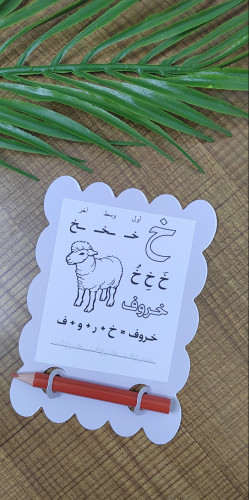 أول وسط آخر
خ
خـ ـخـ ـخ
خَ خِ خُ
خروف
خروف = خ + ر + و + ف